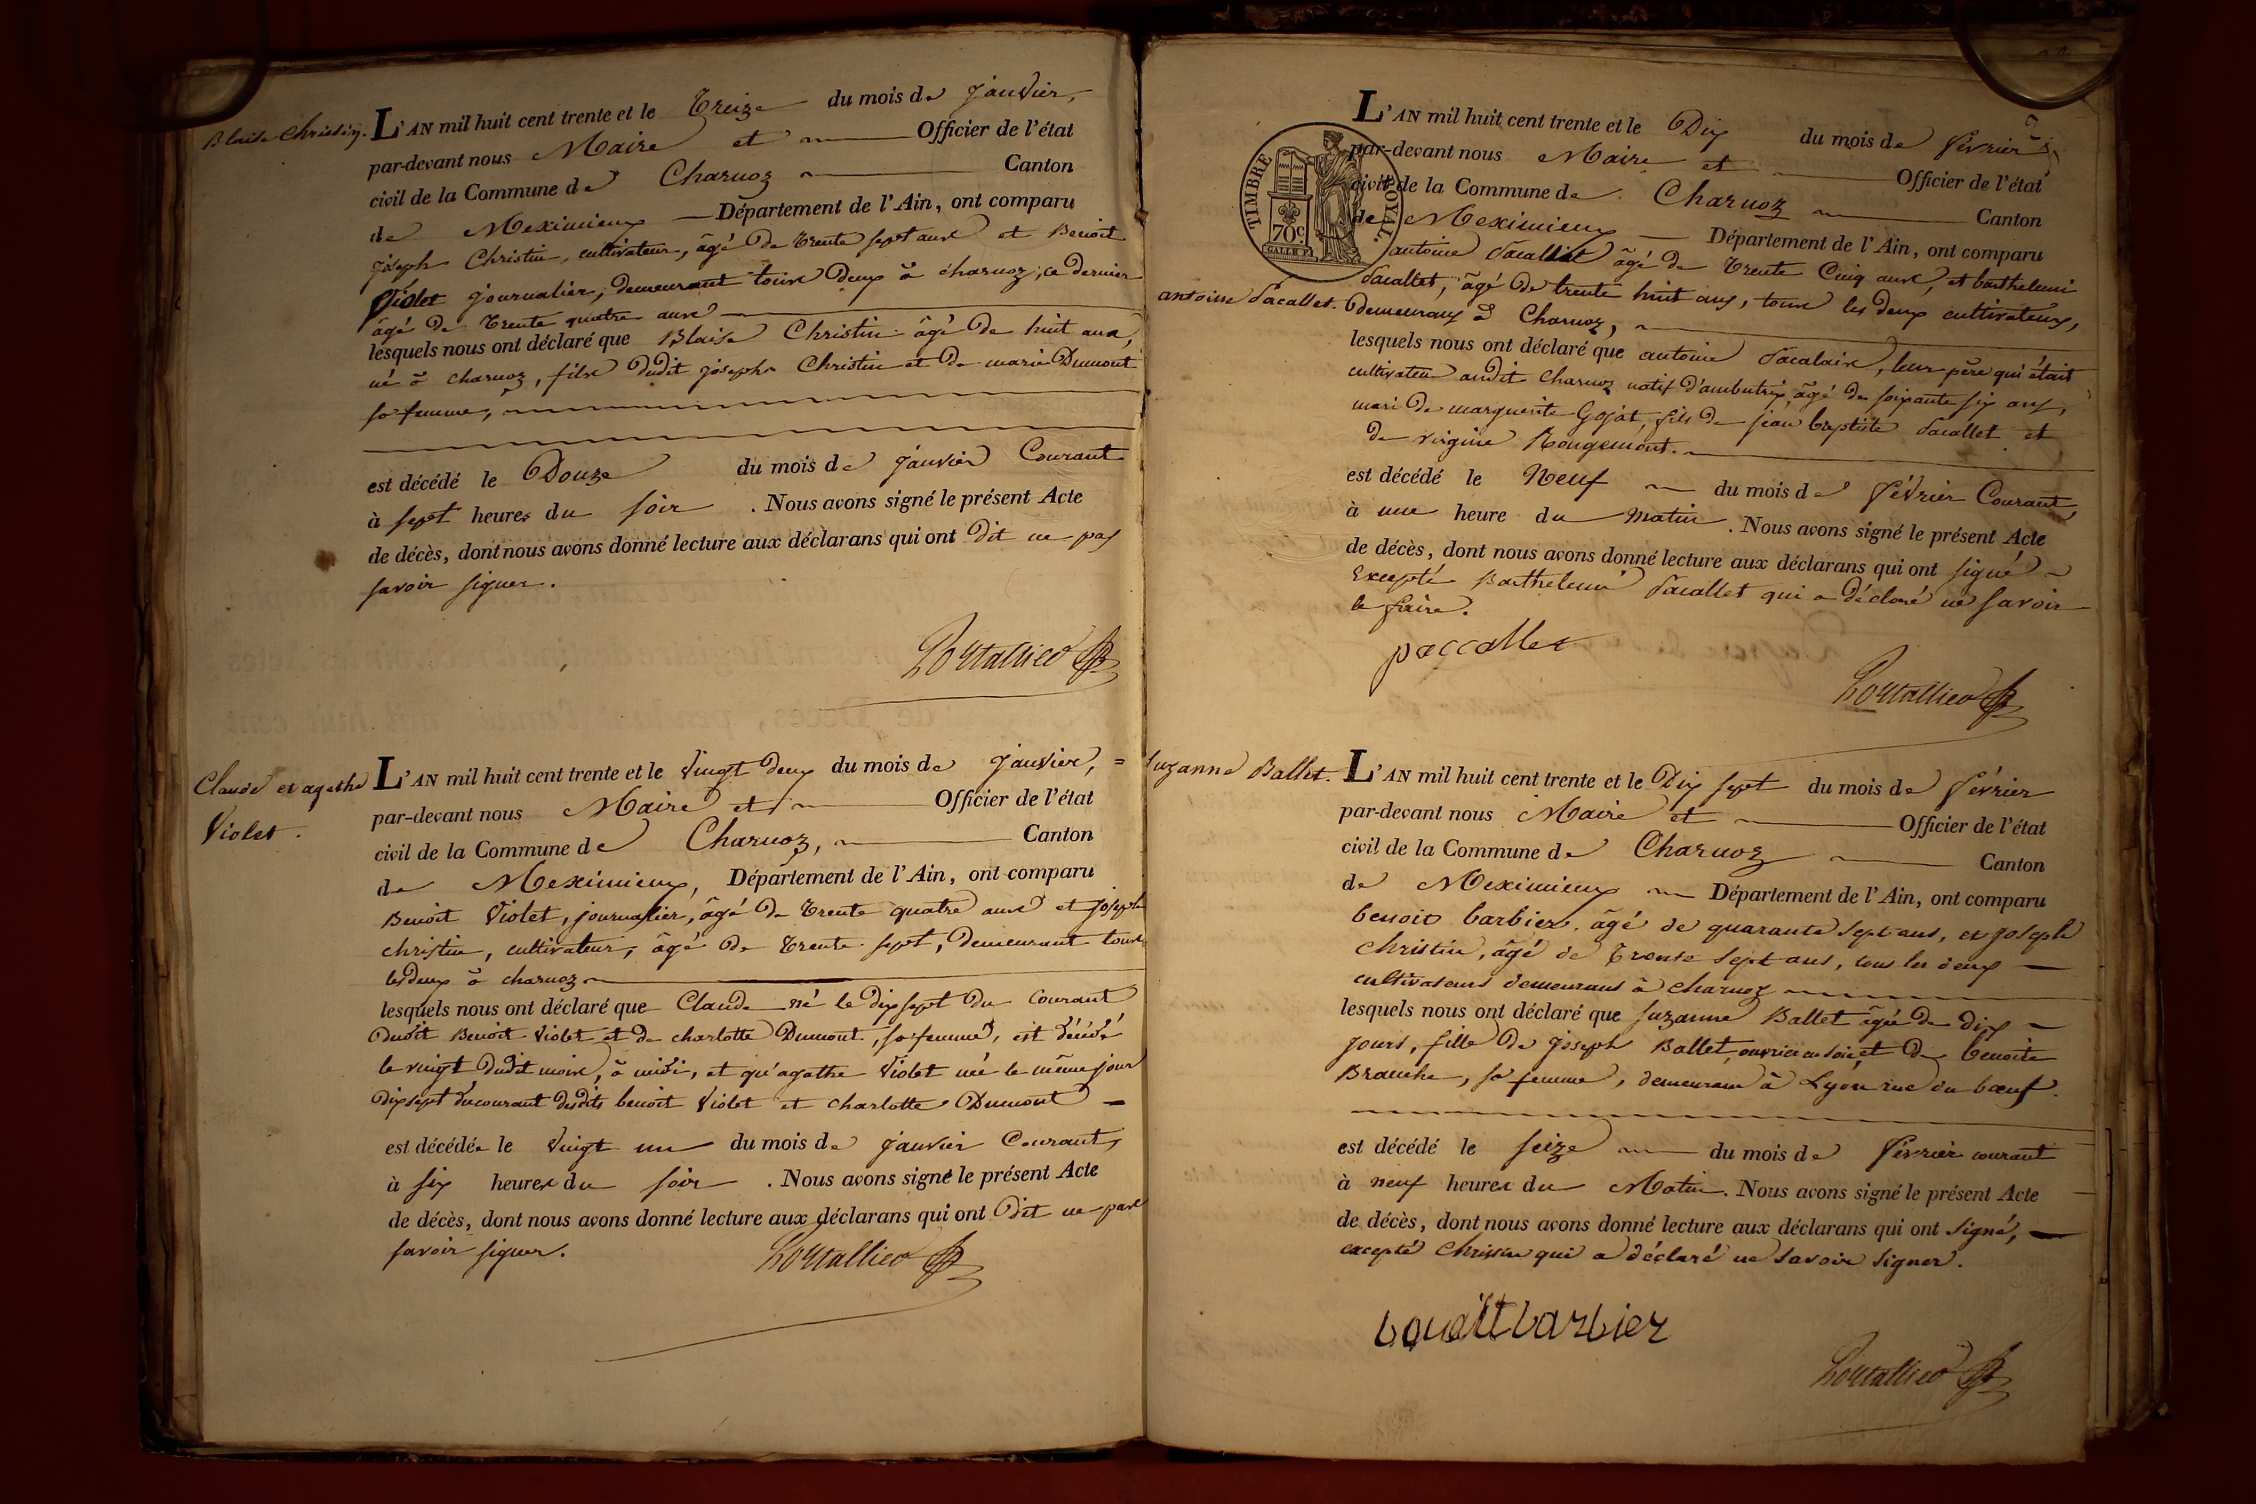 Blaise Christin.
L'AN mil huit cent trente et le Treize du mois de Janvier,
par-devant nous Maire et Officier de l'état
civil de la Commune de Charnoz Canton
de Meximieux Département de l'Ain, ont comparu
joseph Christin, cultivateur, âgé de trente sept ans et Benoit
Violet journalier, demeurant tous deux à charnoz, ce dernier
âgé de trente quatre ans
lesquels nous ont déclaré que Blaise Christin âgé de huit ans,
né à charnoz, fils dudit joseph Christin et de marie Dumont
sa femme,
est décédé le Douze du mois de janvier Courant
à sept heures du soir. Nous avons signé le présent Acte
de décès, dont nous avons donné lecture aux déclarans qui ont dit ne pas
savoir signer.
Claude et agathe
Violet.
L'AN mil huit cent trente et le Vingt deux du mois de Janvier, =
par-devant nous Maire et Officier de l'état
civil de la Commune de Charnoz, Canton
de Meximieux, Département de l'Ain, ont comparu
Benoit Violet, journalier, âgé de trente quatre ans et joseph
christin, cultivateur, âgé de trente sept, demeurant tous
les deux à charnoz
lesquels nous ont déclaré que Claude né le dix sept du Courant
dudit Benoit Violet et de charlotte Dumont, sa femme, est décédé
le vingt dudit mois, à midi, et qu'agathe Violet née le même jour
dix sept du courant desdits benoit Violet et charlotte Dumont
est décédée le vingt un du mois de janvier Courant,
à six heures du soir. Nous avons signé le présent Acte
de décès, dont nous avons donné lecture aux déclarans qui ont dit ne pas
savoir signer.
TIMBRE ROYAL.
70c
antoine Pacallet.
L'AN mil huit cent trente et le Dix du mois de février
par-devant nous Maire et Officier de l'état
civil de la Commune de Charnoz Canton
de Meximieux Département de l'Ain, ont comparu
antoine Pacallet âgé de trente Cinq ans, et barthelemi
Pacallet, âgé de trente huit ans, tous les deux cultivateurs,
demeurans à Charnoz,
lesquels nous ont déclaré que antoine Pacalais, leur père qui était
cultivateur audit Charnoz natif d'ambutrix, âgé de soixante six ans,
mari de marguerite Gojat, fils de jean baptiste Pacallet et
de virginie Rougemont.
est décédé le Neuf du mois de février Courant,
à une heure du matin. Nous avons signé le présent Acte
de décès, dont nous avons donné lecture aux déclarans qui ont signé
Excepté Barthelemi Pacallet qui a déclaré ne savoir
le faire.
paccallet
Suzanne Ballet.
L'AN mil huit cent trente et le Dix sept du mois de février
par-devant nous Maire et Officier de l'état
civil de la Commune de Charnoz Canton
de Meximieux Département de l'Ain, ont comparu
benoit barbier, âgé de quarante sept ans, et joseph
Christin, âgé de trente sept ans, tous les deux
cultivateurs demeurans à charnoz
lesquels nous ont déclaré que suzanne Ballet âgée de dix
jours, fille de joseph Ballet, ouvrier en soie, et de benoite
Branche, sa femme, demeurans à Lyon rue du bœuf.
est décédé le seize du mois de février courant
à neuf heures du Matin. Nous avons signé le présent Acte
de décès, dont nous avons donné lecture aux déclarans qui ont signé,
excepté Christin qui a déclaré ne savoir signer.
barbier